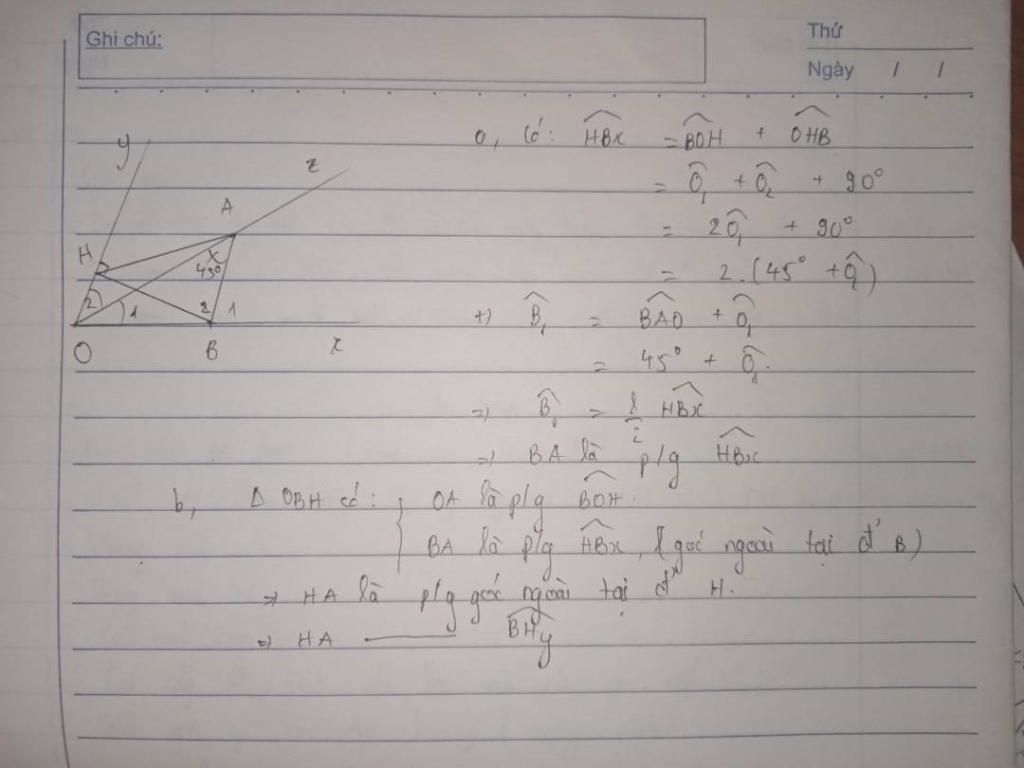 Ghi chú:
Thứ
Ngày / /
a, Có: HBx = BOH + OHB
= O₁ + O₂ + 90°
= 2O₁ + 90°
= 2.(45° + O₁)
+) B₁ = BAO + O₁
= 45° + O₁.
=> B₁ = 1/2 HBx
=> BA là p/g HBx
b, Δ OBH có: { OA là p/g BOH.
BA là p/g HBx, (góc ngoài tại đ' B)
=> HA là p/g góc ngoài tại đ' H.
=> HA ——— BHy
y
z
A
H
x
45°
2
1
2
1
O
B
x